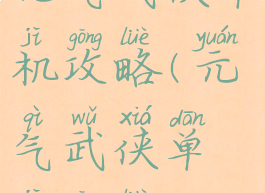 jī gōng lüè yuán
机攻略(元
qì wǔ xiá dān
气武侠单